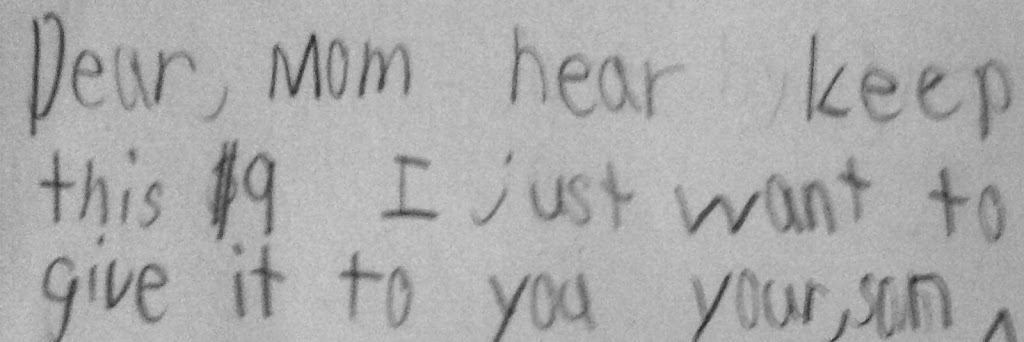 Dear, Mom hear keep
this $9 I just want to
give it to you your, son